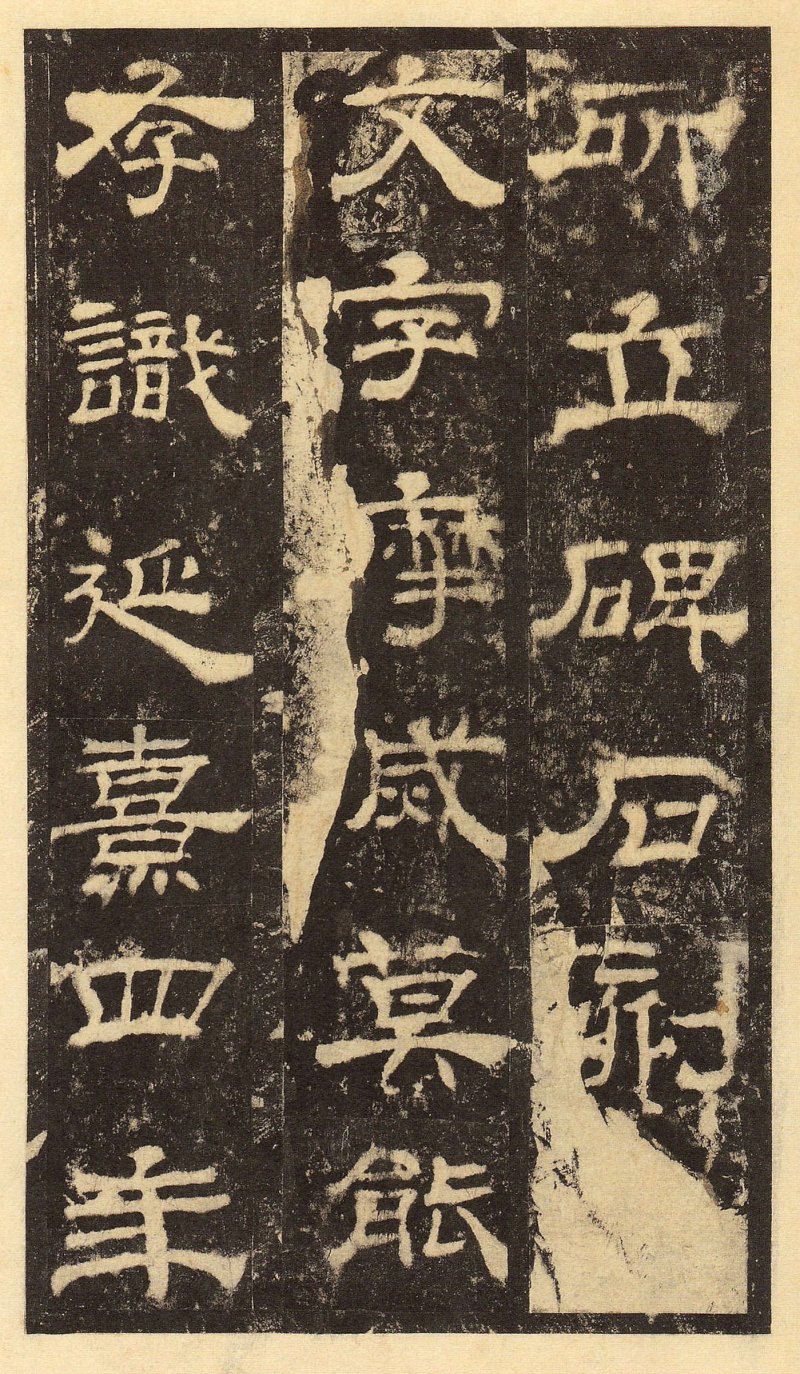 所立碑石刻
文字摩滅莫能
存識延熹四年